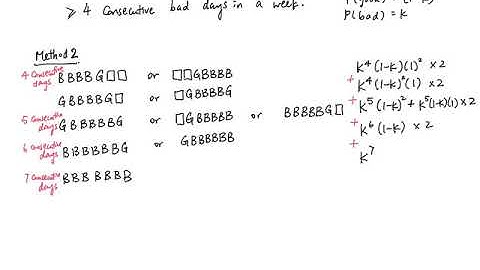 ≥ 4 Consecutive bad days in a week.
P(bad) = K
Method 2
4 Consecutive days BBBBG□□ or □□GBBBB
K⁴(1-K)(1)² × 2
GBBBBG□ or □GBBBBG
+ K⁴(1-K)²(1) × 2
5 Consecutive days GBBBBBG or □GBBBBB or BBBBBG□
+ K⁵(1-K)² + K⁵(1-K)(1) × 2
6 Consecutive days BBBBBBG or GBBBBBB
+ K⁶(1-K) × 2
7 Consecutive days BBBBBBB
+ K⁷